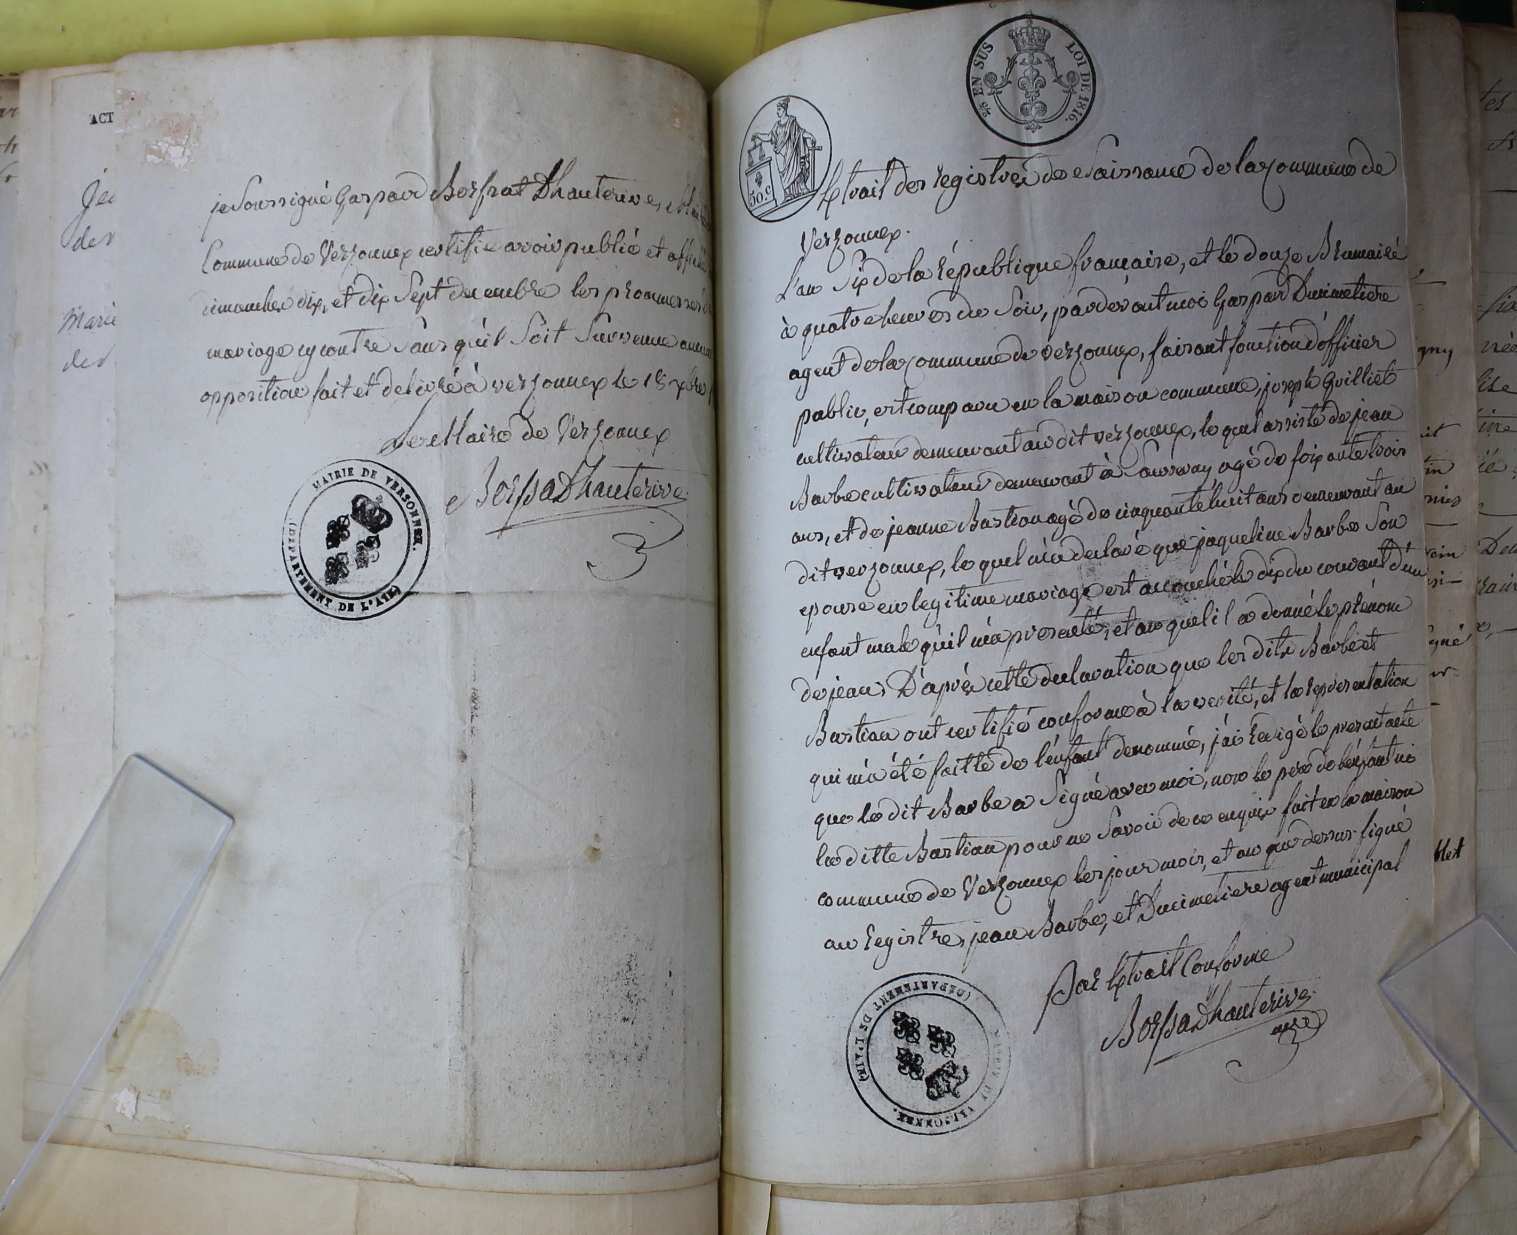 ACT
je Soussigné Gaspard Borssat Dhauterive,
Commune de Verzonnex certifie avoir publié et
dimanches dix, et dix Sept decembre les promesses
mariage cy contre Sans qu'il Soit Survenue
opposition fait et delivré à verzonnex le 18 xbre
Le Maire de Verzonnex
BorssaDhauterive
MAIRIE DE VERSONNEX.
(DÉPARTEMENT DE L'AIN)
EN SUS LOI DE 1816.
50.c
Extrait des registres de Naissance de la Commune de
Verzonnex.
L'an Six de la république française, et le douze Brumaire
à quatre heures du Soir, pardevant moi Gaspard Ducimetiere
agent de la commune de verzonnex, faisant fonction d'officier
public, est comparu en la maison commune, joseph Guilliet
cultivateur demeurant au dit verzonnex, le quel assisté de jean
Barbe cultivateur demeurant à Sauverny agé de soixante trois
ans, et de jeanne Bastian agé de cinquante huit ans demeurant au
dit verzonnex, le quel m'a declaré que jaqueline Barbe Son
epouse en legitime mariage est accouchée le dix du courant d'un
enfant male qu'il m'a presenté, et au quel il a donné le prénom
de jean. D'après cette declaration que les dits Barbe et
Bastian ont certifié conforme à la verité, et la representation
qui m'a été faitte de l'enfant denommé, j'ai redigé le present acte
que le dit Barbe a Signé avec moi, non le père de l'enfant ni
la ditte Bastian pour ne Savoir de ce enquis fait en la maison
commune de Verzonnex les jour mois, et an que dessus. signé
au registre, jean Barbe, et Ducimetiere agent municipal
Par Extrait Conforme
BorssaDhauterive
mre
MAIRIE DE VERSONNEX.
(DÉPARTEMENT DE L'AIN)